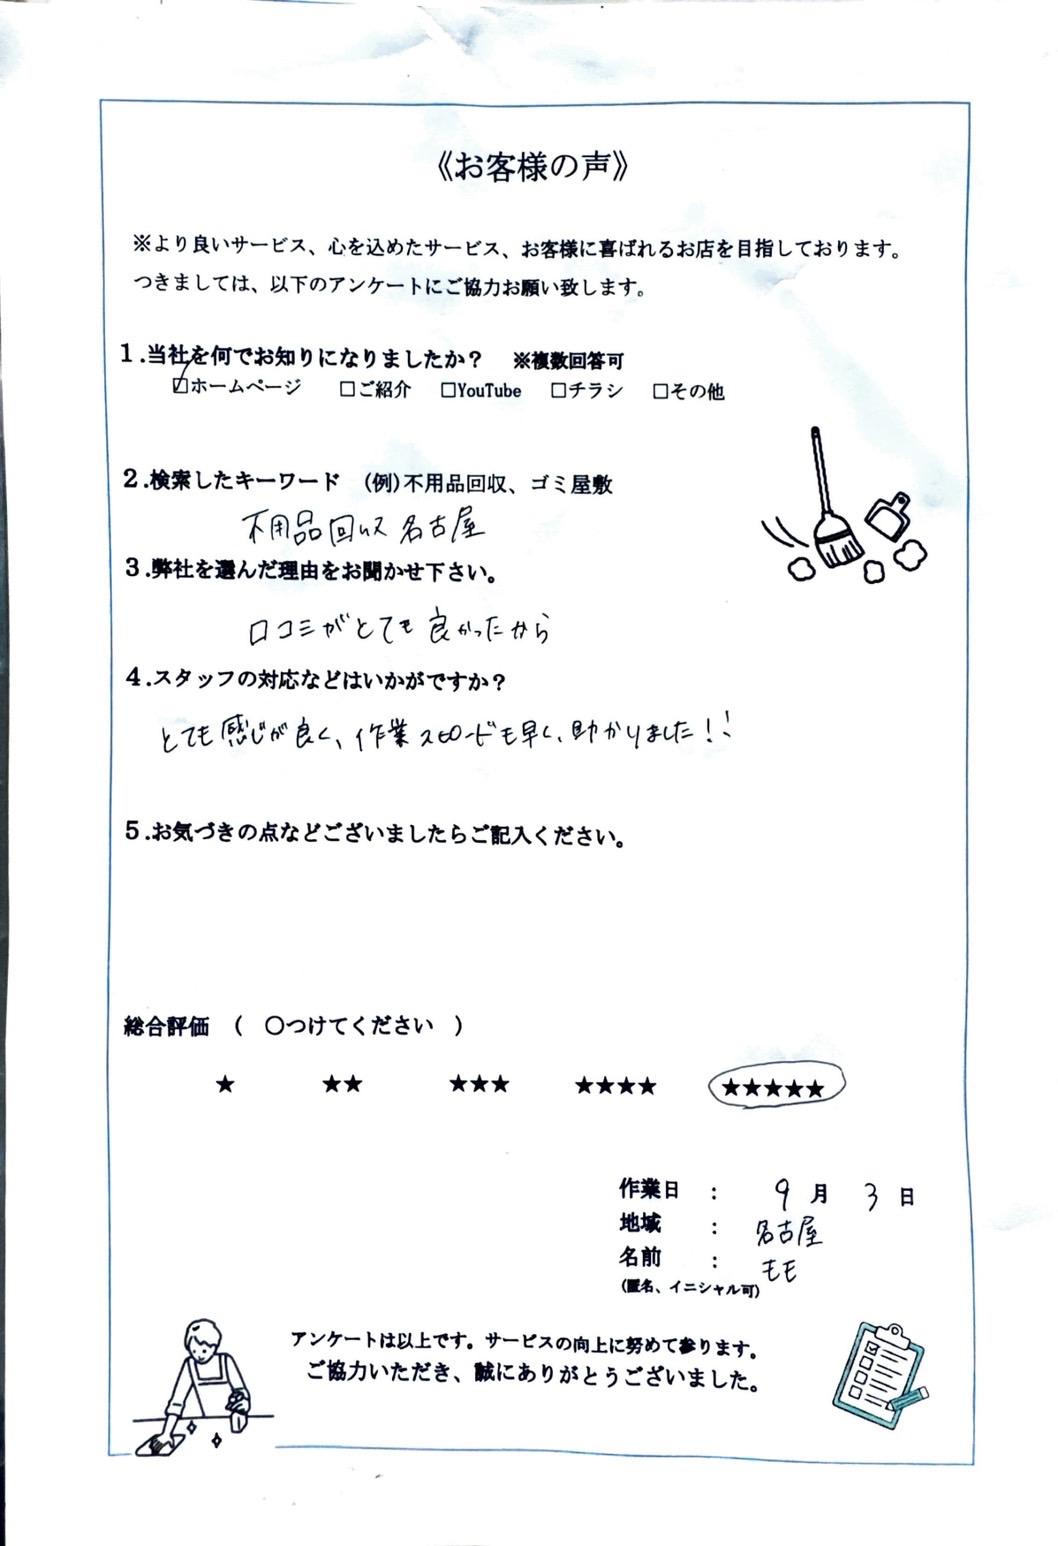 《お客様の声》
※より良いサービス、心を込めたサービス、お客様に喜ばれるお店を目指しております。
つきましては、以下のアンケートにご協力お願い致します。
1.当社を何でお知りになりましたか？　※複数回答可
☑ホームページ　□ご紹介　□YouTube　□チラシ　□その他
2.検索したキーワード　(例)不用品回収、ゴミ屋敷
不用品回収 名古屋
3.弊社を選んだ理由をお聞かせ下さい。
口コミがとても良かったから
4.スタッフの対応などはいかがですか？
とても感じが良く、作業スピードも早く、助かりました！！
5.お気づきの点などございましたらご記入ください。
総合評価　(　○つけてください　)
★　★★　★★★　★★★★　★★★★★
作業日　：　9月　3日
地域　：　名古屋
名前　：　もも
(匿名、イニシャル可)
アンケートは以上です。サービスの向上に努めて参ります。
ご協力いただき、誠にありがとうございました。